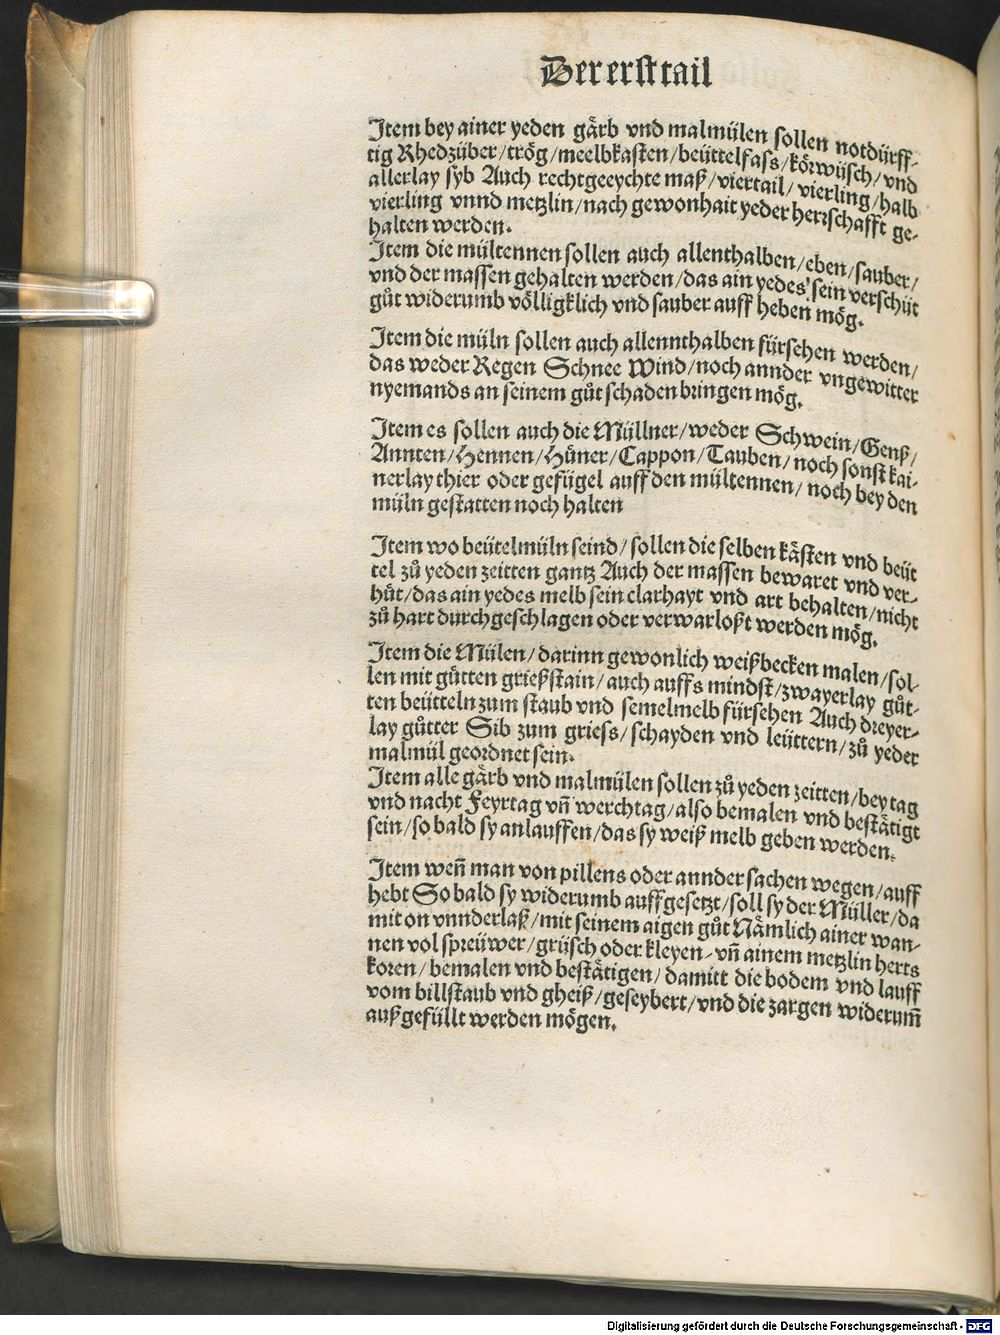 Der erst tail
Item bey ainer yeden gaͤrb vnd malmülen sollen notdürff-
tig Rhedzüber/trög/meelbkasten/beüttelfass/körwüsch/vnd
allerlay syb Auch rechtgeeychte maß/viertail/vierling/halb
vierling vnnd metzlin/nach gewonhait yeder herrschafft ge-
halten werden.
Item die mültennen sollen auch allenthalben/eben/sauber/
vnd der massen gehalten werden/das ain yedes sein verschüt
guͦt widerumb völligklich vnd sauber auff heben mög.
Item die müln sollen auch allennthalben fürsehen werden/
das weder Regen Schnee Wind/noch annder vngewitter
nyemands an seinem guͦt schaden bringen mög.
Item es sollen auch die Müllner/weder Schwein/Genß/
Annten/Hennen/Hüner/Cappon/Tauben/noch sonst kai-
nerlay thier oder gefügel auff den mültennen/noch bey den
müln gestatten noch halten
Item wo beütelmüln seind/sollen die selben kaͤsten vnd beüt
tel zuͦ yeden zeitten gantz Auch der massen bewaret vnd ver-
hüt/das ain yedes melb sein clarhayt vnd art behalten/nicht
zuͦ hart durchgeschlagen oder verwarloßt werden mög.
Item die Mülen/darinn gewonlich weißbecken malen/sol-
len mit guͦtten grießstain/auch auffs mindst/zwayerlay guͦt-
ten beütteln zum staub vnd semelmelb fürsehen Auch dreyer-
lay guͦtter Sib zum griess/schayden vnd leüttern/zuͦ yeder
malmül geordnet sein.
Item alle gaͤrb vnd malmülen sollen zuͦ yeden zeitten/bey tag
vnd nacht Feyrtag vn̄ werchtag/also bemalen vnd bestaͤtigt
sein/so bald sy anlauffen/das sy weiß melb geben werden.
Item wen̄ man von pillens oder annder sachen wegen/auff
hebt So bald sy widerumb auffgesetzt/soll sy der Müller/da
mit on vnnderlaß/mit seinem aigen guͦt Naͤmlich ainer wan-
nen vol spreüwer/grüsch oder kleyen-vn̄ ainem metzlin herts
koren/bemalen vnd bestaͤtigen/damitt die bodem vnd lauff
vom billstaub vnd gheiß/geseybert/vnd die zargen widerum̄
außgefüllt werden mögen.
Digitalisierung gefördert durch die Deutsche Forschungsgemeinschaft - DFG